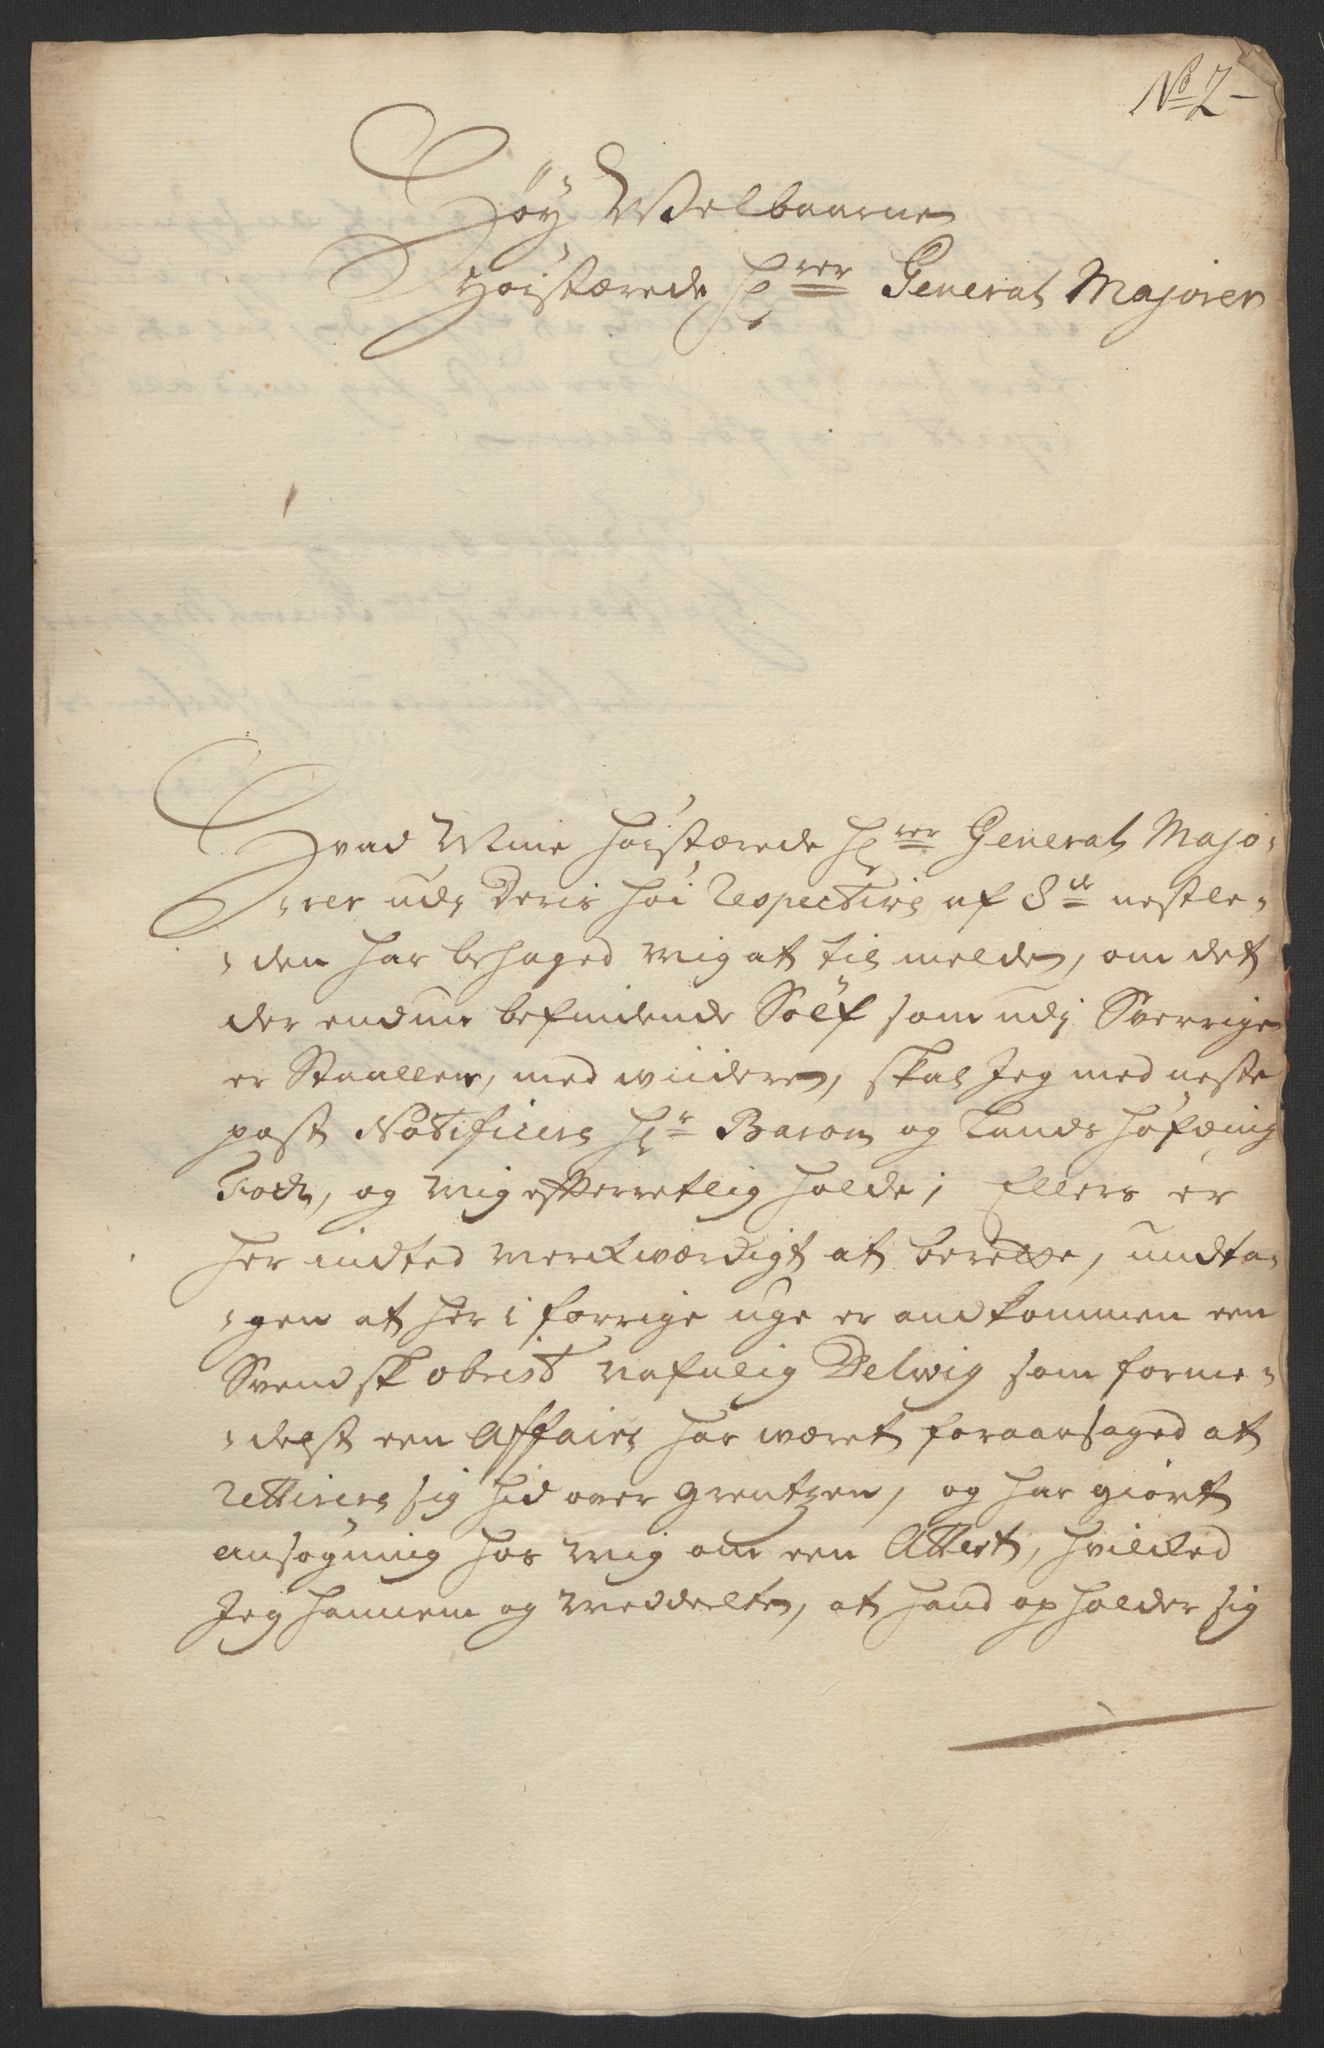 No 2-
Høy Welbaarne
Høistærede Hrer General Majorer
Hvad Mine høistærede Hrer General Majo-
-rer udj Deris høi Respective af 8de nestle-
-den har behaged mig at til melde, om det
der endnu befindende Sölf som udj Sverrige
er Staallen, med wiidere, skal Jeg med neste
post Notificere Hr Baron og Lands höfding
og mig efterretlig holde; Ellers er
her indted merkværdigt at berette, undta-
-gen at her i forrige uge er andkommen een
Svendsk obrist nafnlig Delwig som forme-
-delst een Affaire har været foraarsaged at
rettirere sig hid over grentzen, og har giört
ansögning hos mig om een Attest, hvilked
Jeg hannem og meddeelte, at hand opholder sig